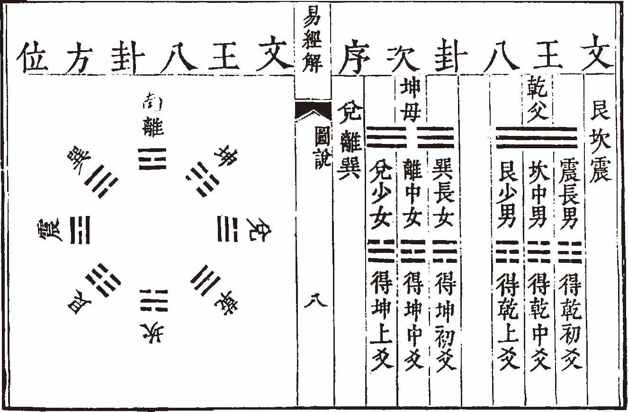 文王八卦次序
艮坎震
乾父
震長男
得乾初爻
坎中男
得乾中爻
艮少男
得乾上爻
坤母
巽長女
得坤初爻
離中女
得坤中爻
兌少女
得坤上爻
兌離巽
易經解
圖說
八
文王八卦方位
南
離
坤
兌
乾
坎
艮
震
巽